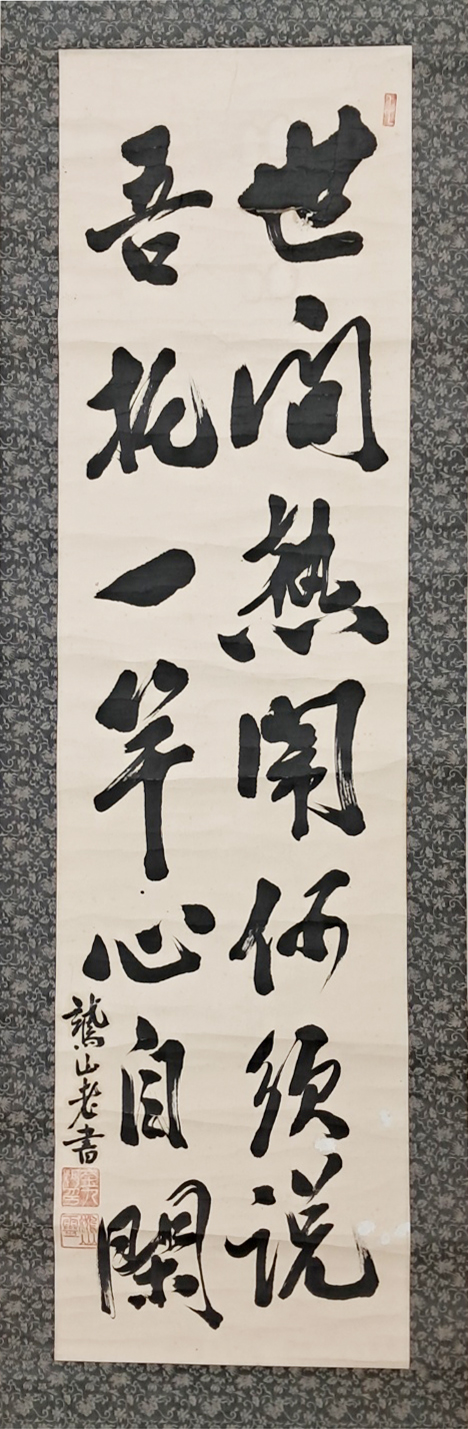 世间熱鬧何須説
吾托一竿心自閑
鷲山老書